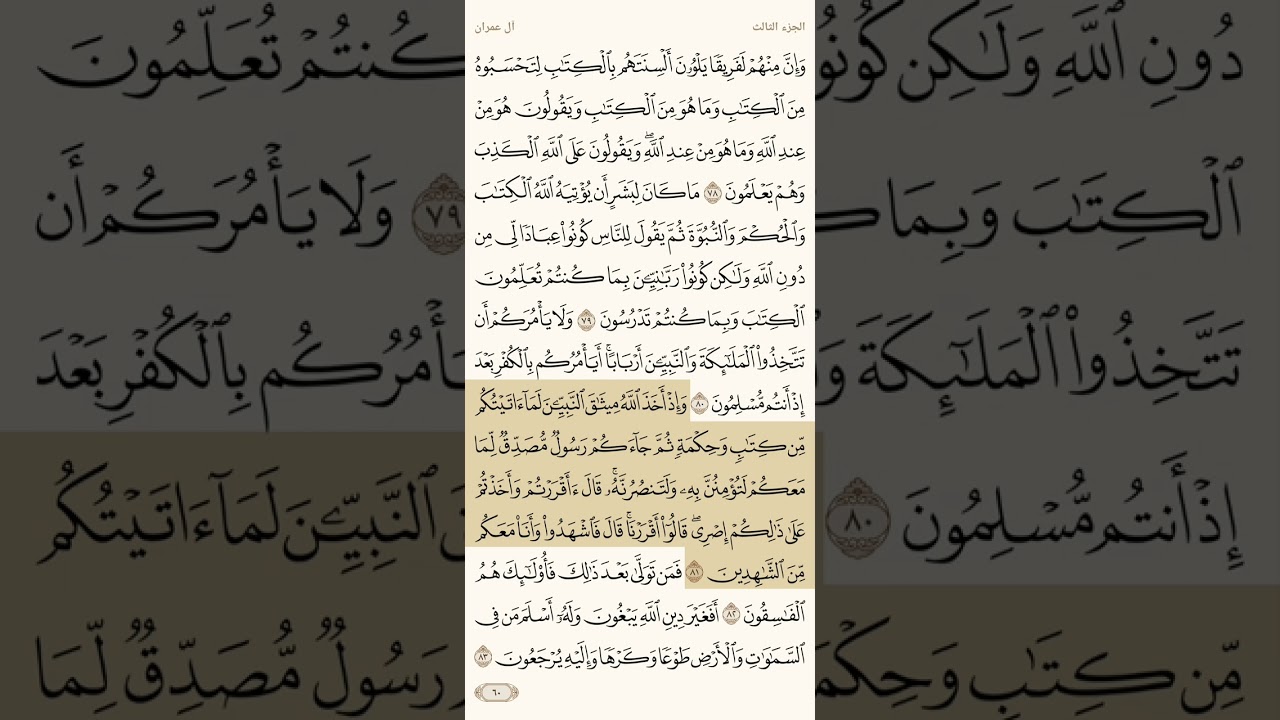 الجزء الثالث
آل عمران
وَإِنَّ مِنْهُمْ لَفَرِيقًا يَلْوُۥنَ أَلْسِنَتَهُم بِٱلْكِتَٰبِ لِتَحْسَبُوهُ
مِنَ ٱلْكِتَٰبِ وَمَا هُوَ مِنَ ٱلْكِتَٰبِ وَيَقُولُونَ هُوَ مِنْ
عِندِ ٱللَّهِ وَمَا هُوَ مِنْ عِندِ ٱللَّهِۖ وَيَقُولُونَ عَلَى ٱللَّهِ ٱلْكَذِبَ
وَهُمْ يَعْلَمُونَ ٧٨ مَا كَانَ لِبَشَرٍ أَن يُؤْتِيَهُ ٱللَّهُ ٱلْكِتَٰبَ
وَٱلْحُكْمَ وَٱلنُّبُوَّةَ ثُمَّ يَقُولَ لِلنَّاسِ كُونُوا۟ عِبَادًا لِّى مِن
دُونِ ٱللَّهِ وَلَٰكِن كُونُوا۟ رَبَّٰنِيِّۦنَ بِمَا كُنتُمْ تُعَلِّمُونَ
ٱلْكِتَٰبَ وَبِمَا كُنتُمْ تَدْرُسُونَ ٧٩ وَلَا يَأْمُرَكُمْ أَن
تَتَّخِذُوا۟ ٱلْمَلَٰٓئِكَةَ وَٱلنَّبِيِّۦنَ أَرْبَابًاۗ أَيَأْمُرُكُم بِٱلْكُفْرِ بَعْدَ
إِذْ أَنتُم مُّسْلِمُونَ ٨٠ وَإِذْ أَخَذَ ٱللَّهُ مِيثَٰقَ ٱلنَّبِيِّۦنَ لَمَآ ءَاتَيْتُكُم
مِّن كِتَٰبٍ وَحِكْمَةٍ ثُمَّ جَآءَكُمْ رَسُولٌ مُّصَدِّقٌ لِّمَا
مَعَكُمْ لَتُؤْمِنُنَّ بِهِۦ وَلَتَنصُرُنَّهُۥۚ قَالَ ءَأَقْرَرْتُمْ وَأَخَذْتُمْ
عَلَىٰ ذَٰلِكُمْ إِصْرِىۖ قَالُوٓا۟ أَقْرَرْنَاۚ قَالَ فَٱشْهَدُوا۟ وَأَنَا۠ مَعَكُم
مِّنَ ٱلشَّٰهِدِينَ ٨١ فَمَن تَوَلَّىٰ بَعْدَ ذَٰلِكَ فَأُو۟لَٰٓئِكَ هُمُ
ٱلْفَٰسِقُونَ ٨٢ أَفَغَيْرَ دِينِ ٱللَّهِ يَبْغُونَ وَلَهُۥٓ أَسْلَمَ مَن فِى
ٱلسَّمَٰوَٰتِ وَٱلْأَرْضِ طَوْعًا وَكَرْهًا وَإِلَيْهِ يُرْجَعُونَ ٨٣
٦٠
دُونِ ٱللَّهِ وَلَٰكِن كُونُو
ٱلْكِتَٰبَ وَبِمَا
تَتَّخِذُوا۟ ٱلْمَلَٰٓئِكَةَ
إِذْ أَنتُم مُّسْلِمُونَ ٨٠
مِّن كِتَٰبٍ وَحِكْمَ
كُنتُمْ تُعَلِّمُونَ
٧٩ وَلَا يَأْمُرَكُمْ أَن
يَأْمُرُكُم بِٱلْكُفْرِ بَعْدَ
ٱلنَّبِيِّۦنَ لَمَآ ءَاتَيْتُكُم
رَسُولٌ مُّصَدِّقٌ لِّمَا